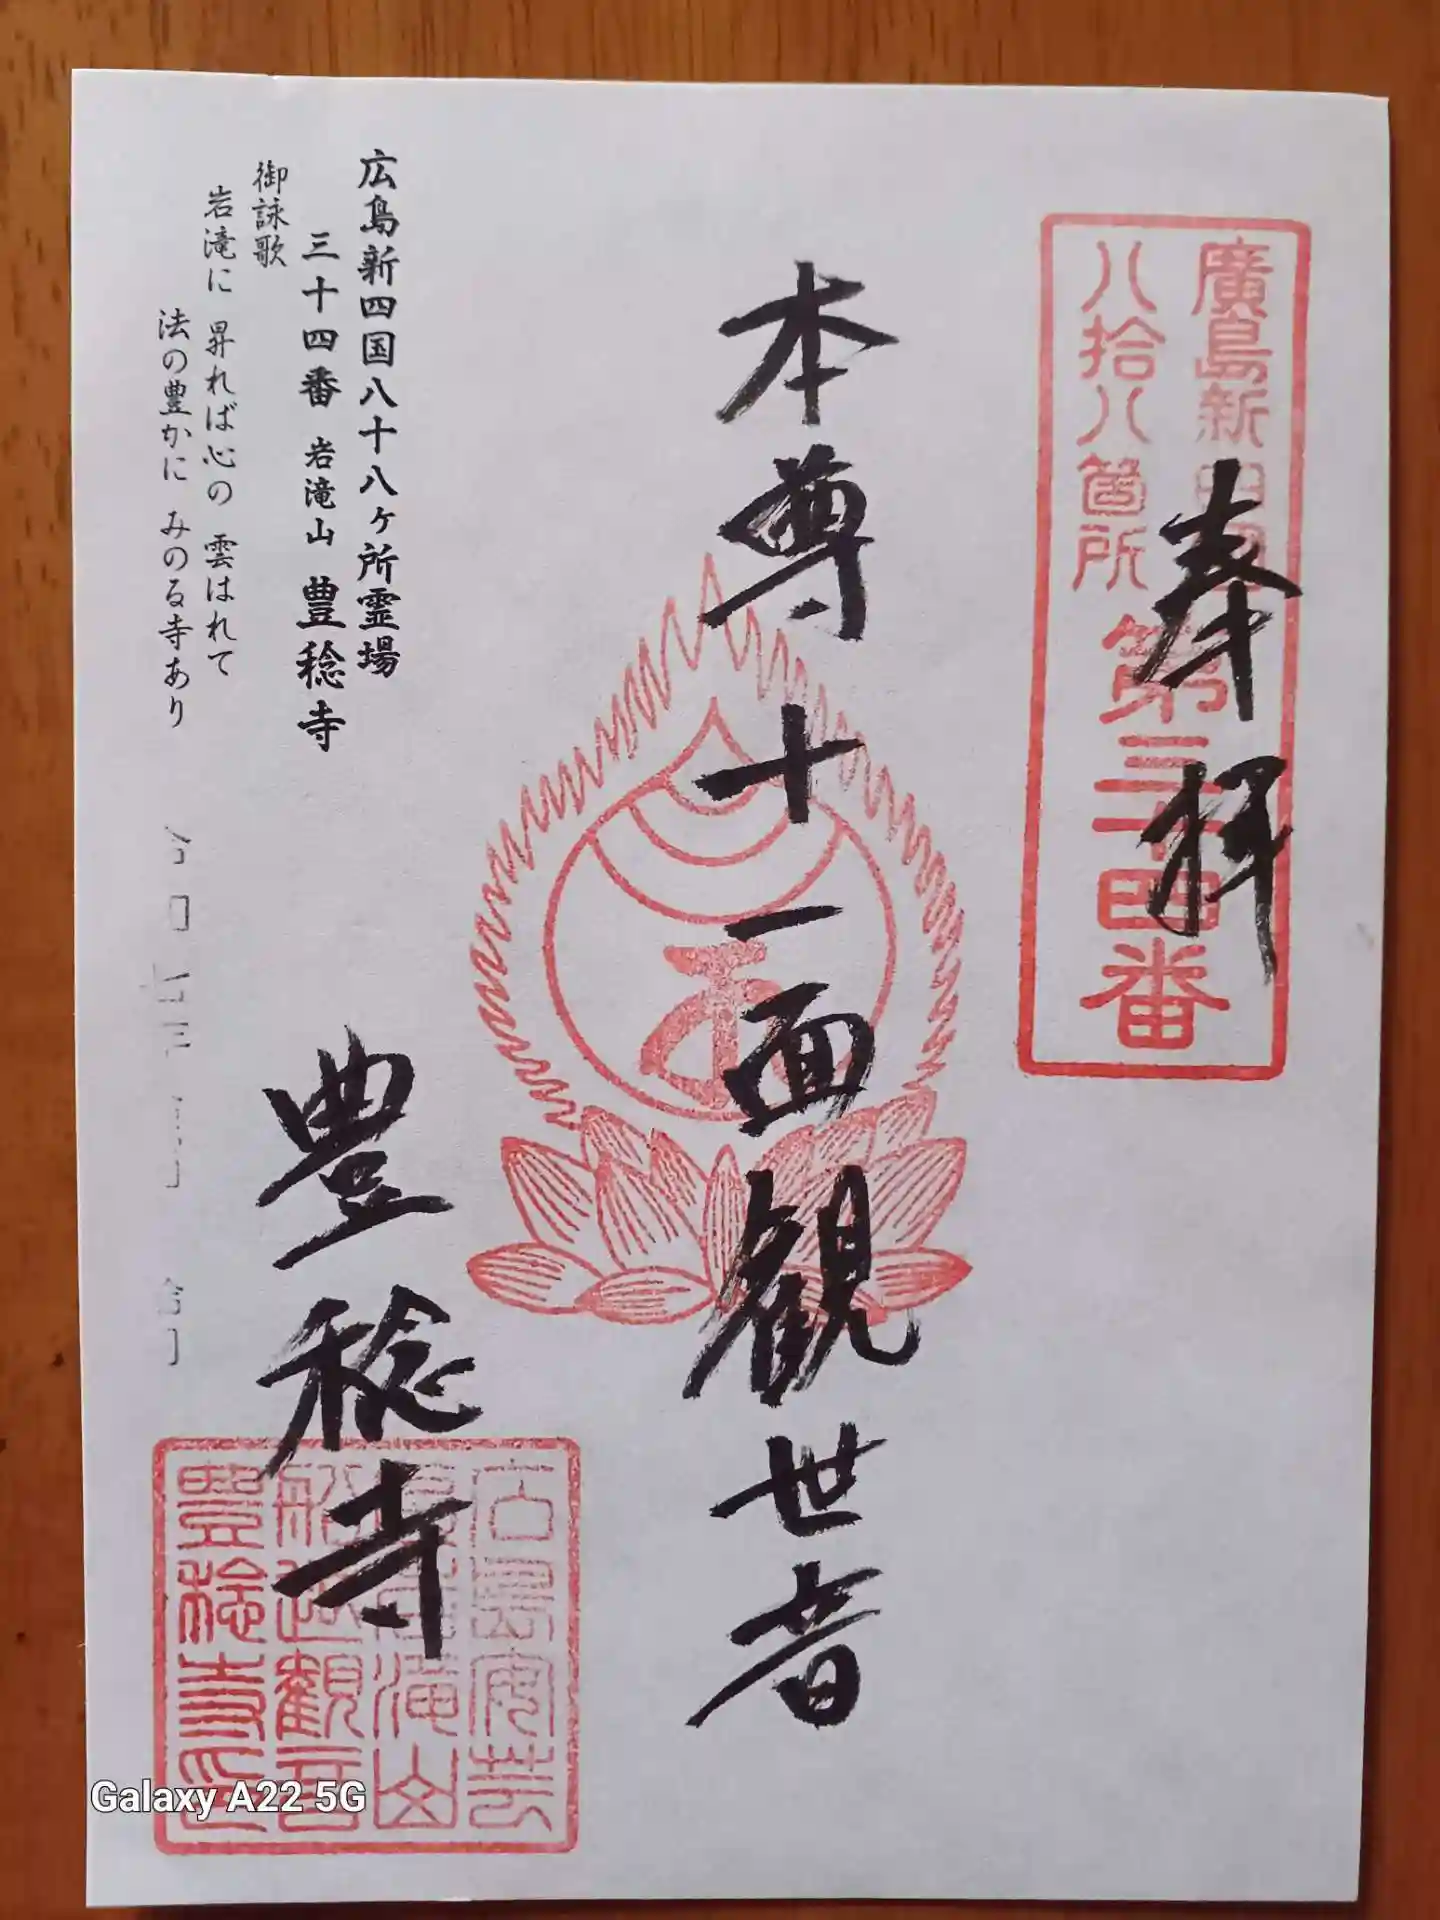 奉拝
廣島新四国
八拾八箇所
第三十四番
本尊十一面観世音
豊稔寺
広島新四国八十八ヶ所霊場
三十四番 岩滝山 豊稔寺
御詠歌
岩滝に 昇れば心の 雲はれて
法の豊かに みのる寺あり
広島安芸
滝山
船越観音
豊稔寺印
Galaxy A22 5G